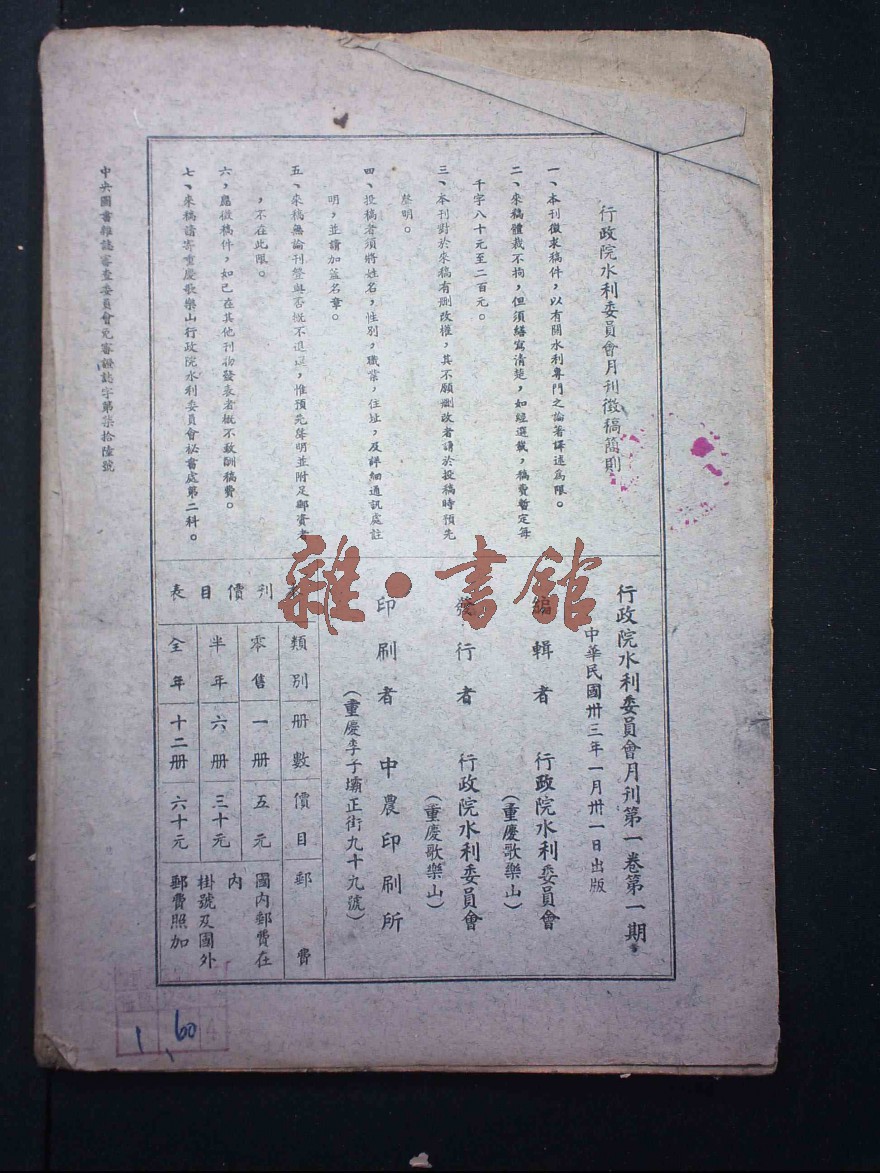 行政院水利委員會月刊徵稿簡則
一、本刊徵求稿件，以有關水利專門之論著譯述為限。
二、來稿體裁不拘，但須繕寫清楚，如經選載，稿費暫定每
千字八十元至二百元。
三、本刊對於來稿有刪改權，其不願刪改者請於投稿時預先
聲明。
四、投稿者須將姓名，性別，職業，住址，及詳細通訊處註
明，並請加蓋名章。
五、來稿無論刊登與否概不退還，惟預先聲明並附足郵資者
，不在此限。
六，應徵稿件，如已在其他刊物發表者概不致酬稿費。
七、來稿請寄重慶歌樂山行政院水利委員會秘書處第二科。
中央圖書雜誌審查委員會免審證誌字第柒拾陸號
行政院水利委員會月刊第一卷第一期
中華民國卅三年一月卅一日出版
編輯者 行政院水利委員會
（重慶歌樂山）
發行者 行政院水利委員會
（重慶歌樂山）
印刷者 中農印刷所
（重慶李子壩正街九十九號）
本刊價目表
類別 册數 價目 郵費
零售 一册 五元
半年 六册 三十元
全年 十二册 六十元
國內郵費在
內
掛號及國外
郵費照加
雜·書館
1 60 4